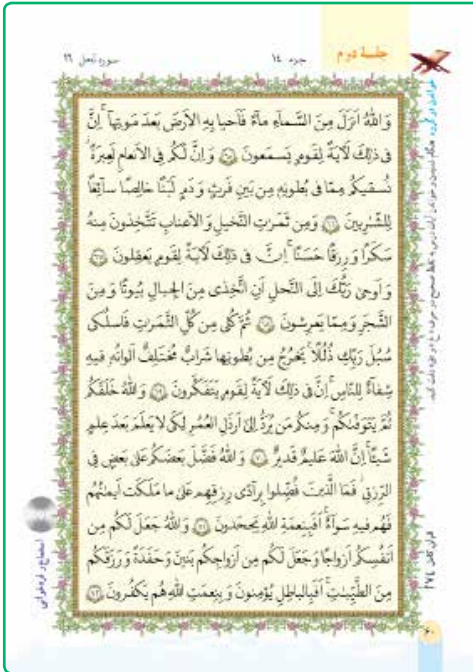 جلسهٔ دوم
جزء ١٤
سوره نحل ١٦
وَاللّٰهُ اَنزَلَ مِنَ السَّمآءِ مآءً فَاَحيا بِهِ الاَرضَ بَعدَ مَوتِهآ اِنَّ
فى ذٰلِكَ لَآيَةً لِقَومٍ يَسمَعونَ ٦٥ وَ اِنَّ لَكُم فِى الاَنعامِ لَعِبرَةً
نُسقيكُم مِمّا فى بُطونِهٖ مِن بَينِ فَرثٍ وَ دَمٍ لَبَنًا خالِصًا سآئِغًا
لِلشّٰرِبينَ ٦٦ وَ مِن ثَمَرٰتِ النَّخيلِ وَ الاَعنابِ تَتَّخِذونَ مِنهُ
سَكَرًا وَ رِزقًا حَسَنًا اِنَّ فى ذٰلِكَ لَآيَةً لِقَومٍ يَعقِلونَ ٦٧
وَ اَوحىٰ رَبُّكَ اِلَى النَّحلِ اَنِ اتَّخِذى مِنَ الجِبالِ بُيوتًا وَ مِنَ
الشَّجَرِ وَ مِمّا يَعرِشونَ ٦٨ ثُمَّ كُلى مِن كُلِّ الثَّمَرٰتِ فَاسلُكى
سُبُلَ رَبِّكِ ذُلُلًا يَخرُجُ مِن بُطونِها شَرابٌ مُختَلِفٌ اَلوانُهٗ فيهِ
شِفآءٌ لِلنّاسِ اِنَّ فى ذٰلِكَ لَآيَةً لِقَومٍ يَتَفَكَّرونَ ٦٩ وَ اللّٰهُ خَلَقَكُم
ثُمَّ يَتَوَفّٰىكُم وَ مِنكُم مَن يُرَدُّ اِلىٰٓ اَرذَلِ العُمُرِ لِكَى لا يَعلَمَ بَعدَ عِلمٍ
شَيئًا اِنَّ اللّٰهَ عَليمٌ قَديرٌ ٧٠ وَ اللّٰهُ فَضَّلَ بَعضَكُم عَلىٰ بَعضٍ فِى
الرِّزقِ فَمَا الَّذينَ فُضِّلوا بِرآدّى رِزقِهِم عَلىٰ ما مَلَكَت اَيمٰنُهُم
فَهُم فيهِ سَوآءٌ اَفَبِنِعمَةِ اللّٰهِ يَجحَدونَ ٧١ وَ اللّٰهُ جَعَلَ لَكُم مِن
اَنفُسِكُم اَزواجًا وَ جَعَلَ لَكُم مِن اَزواجِكُم بَنينَ وَ حَفَدَةً وَ رَزَقَكُم
مِنَ الطَّيِّبٰتِ اَفَبِالباطِلِ يُؤمِنونَ وَ بِنِعمَتِ اللّٰهِ هُم يَكفُرونَ ٧٢
قرآن کامل ٢٧٤
استماع و قرائت
٦٠